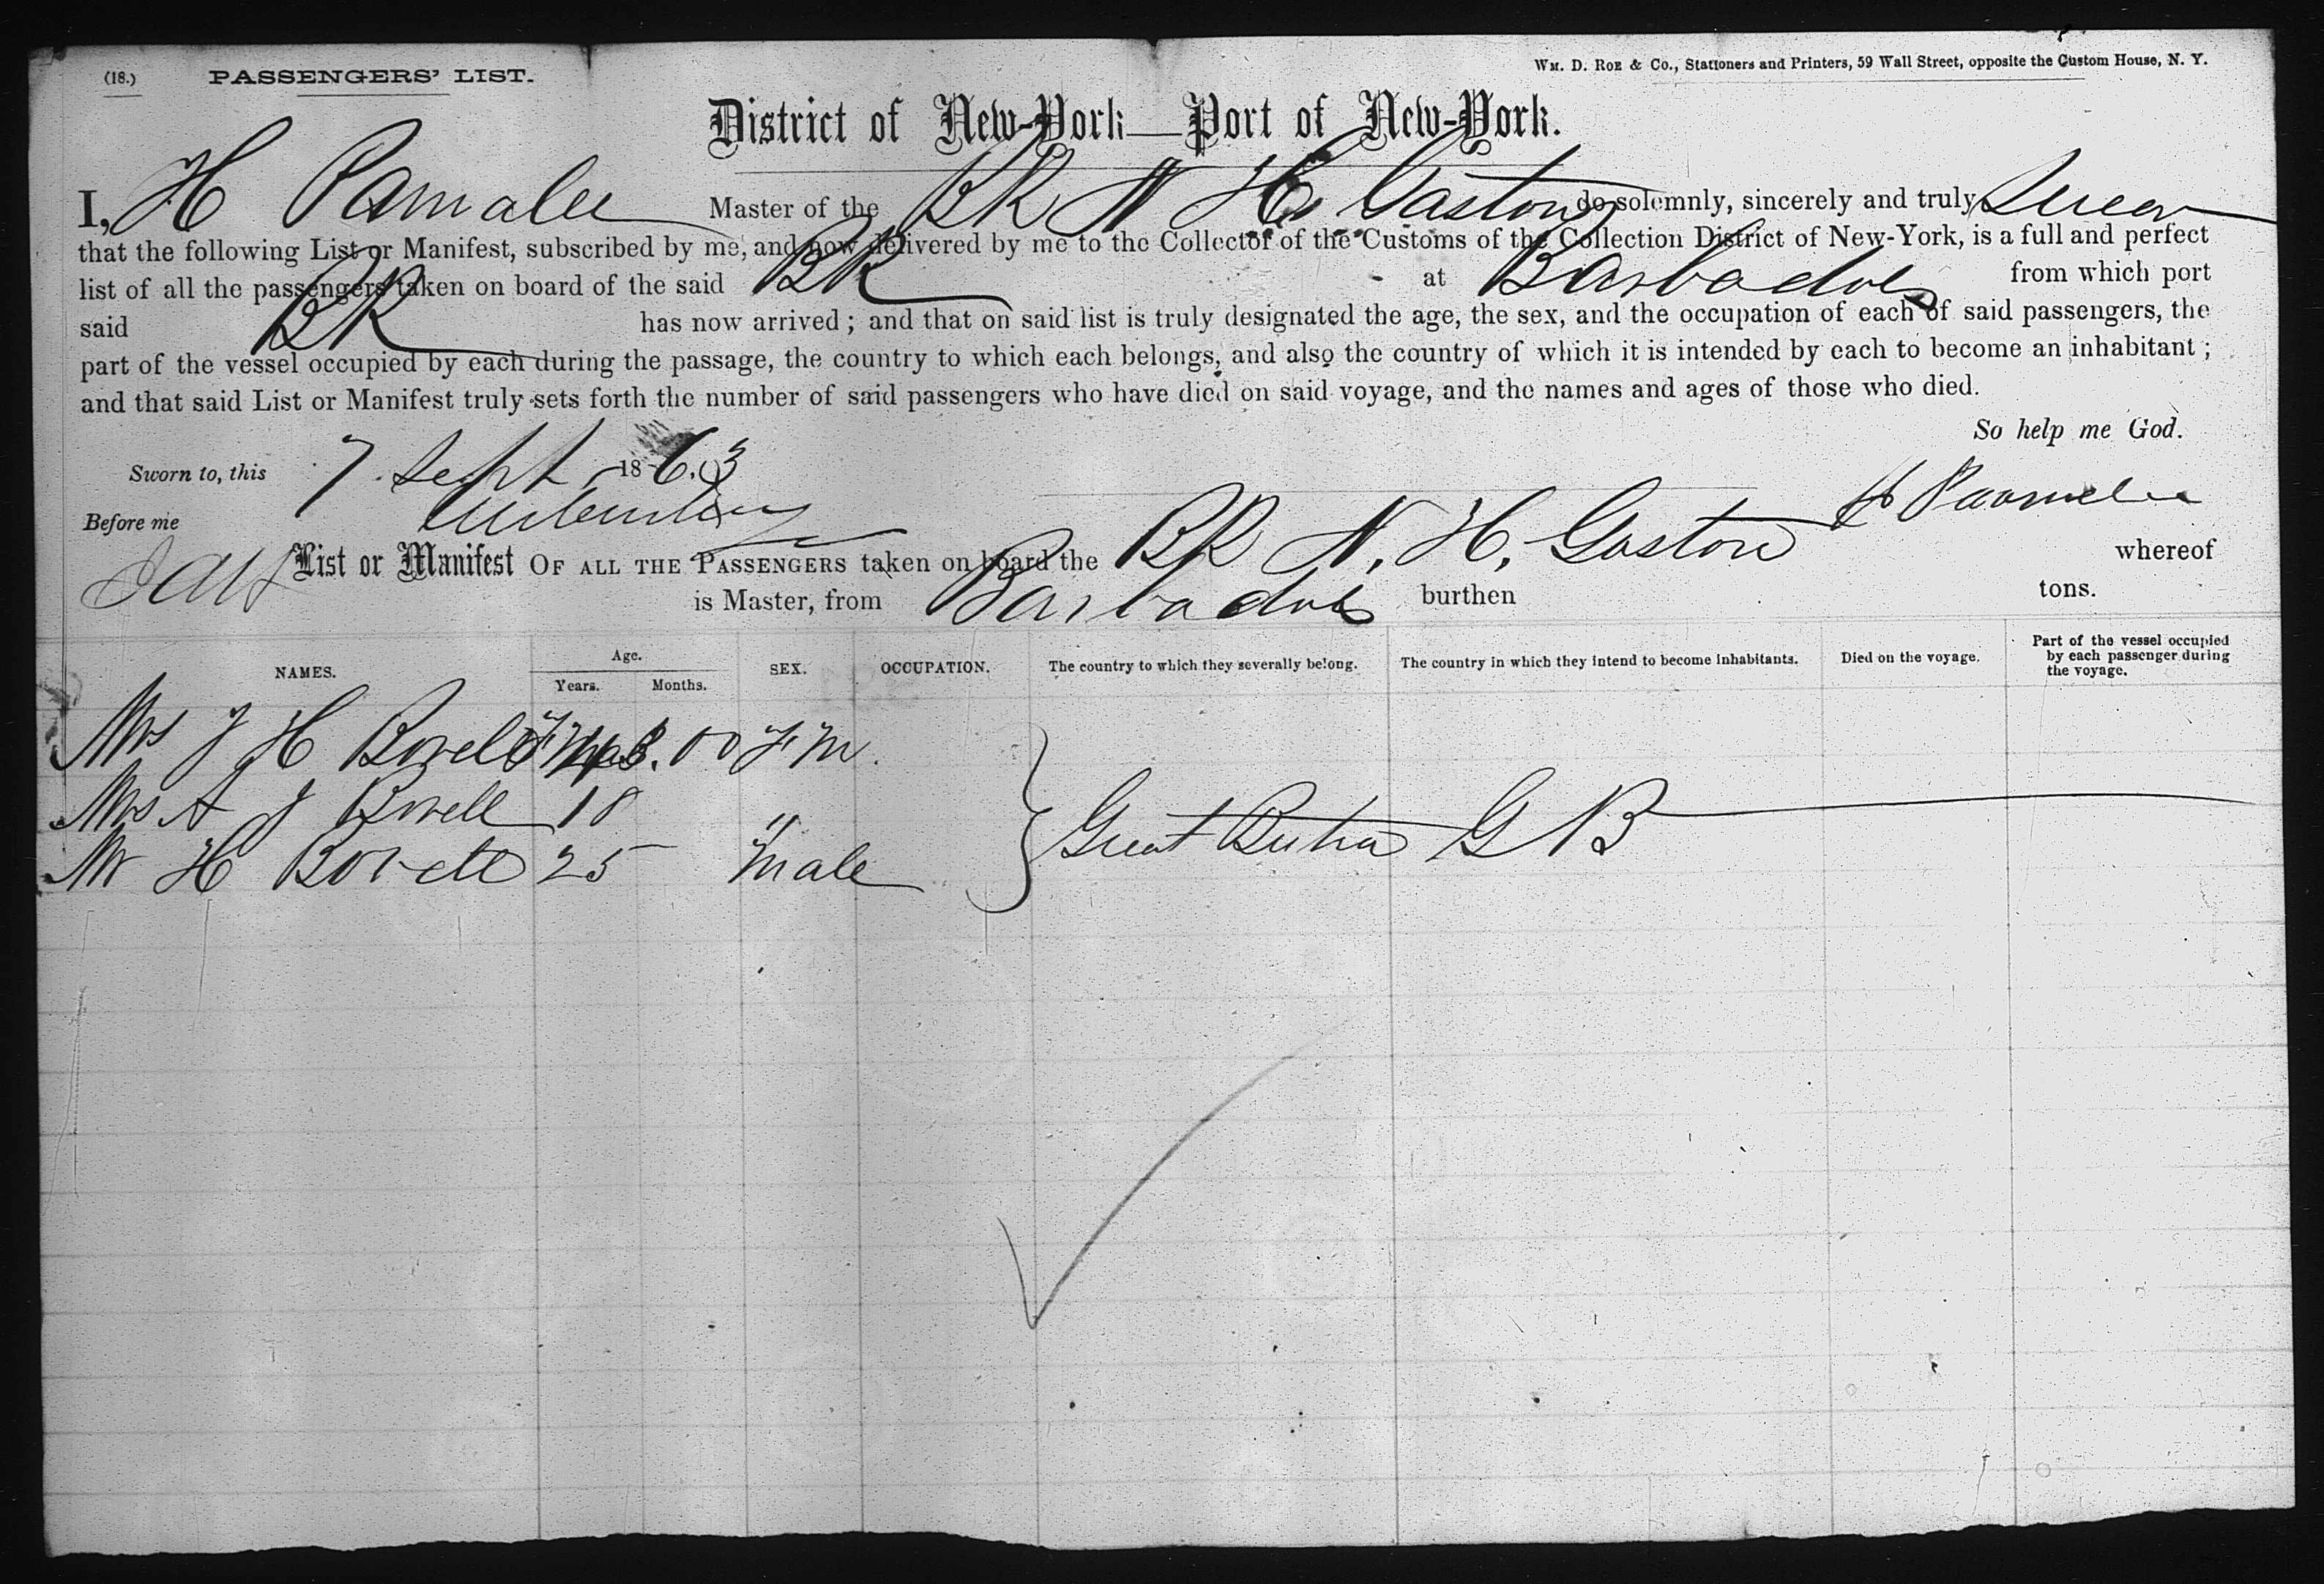 (18.) PASSENGERS' LIST. WM. D. ROE & Co., Stationers and Printers, 59 Wall Street, opposite the Custom House, N. Y.
District of New-York—Port of New-York.
I, H Pamalee Master of the BK N H. Gaston do solemnly, sincerely and truly Swear
that the following List or Manifest, subscribed by me, and now delivered by me to the Collector of the Customs of the Collection District of New-York, is a full and perfect
list of all the passengers taken on board of the said BK at Barbadoes from which port
said BK has now arrived; and that on said list is truly designated the age, the sex, and the occupation of each of said passengers, the
part of the vessel occupied by each during the passage, the country to which each belongs, and also the country of which it is intended by each to become an inhabitant;
and that said List or Manifest truly sets forth the number of said passengers who have died on said voyage, and the names and ages of those who died.
So help me God.
Sworn to, this 7 Sept 1863
Before me H Parmelee
List or Manifest OF ALL THE PASSENGERS taken on board the BK N. H. Gaston whereof
is Master, from Barbadoes burthen tons.
NAMES. Age. Years. Months. SEX. OCCUPATION. The country to which they severally belong. The country in which they intend to become inhabitants. Died on the voyage. Part of the vessel occupied by each passenger during the voyage.
Mrs J H Bovell
Mrs A J Bovell 18 "
Mr H Bovell 25 male Great Britain G B